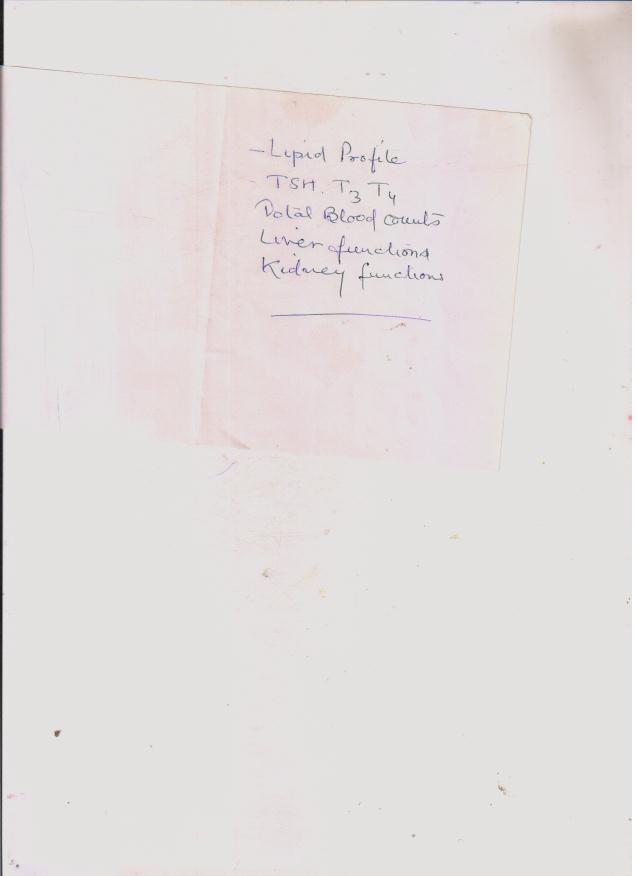 - Lipid Profile
- TSH. T3 T4
Total Blood counts
Liver functions
Kidney functions